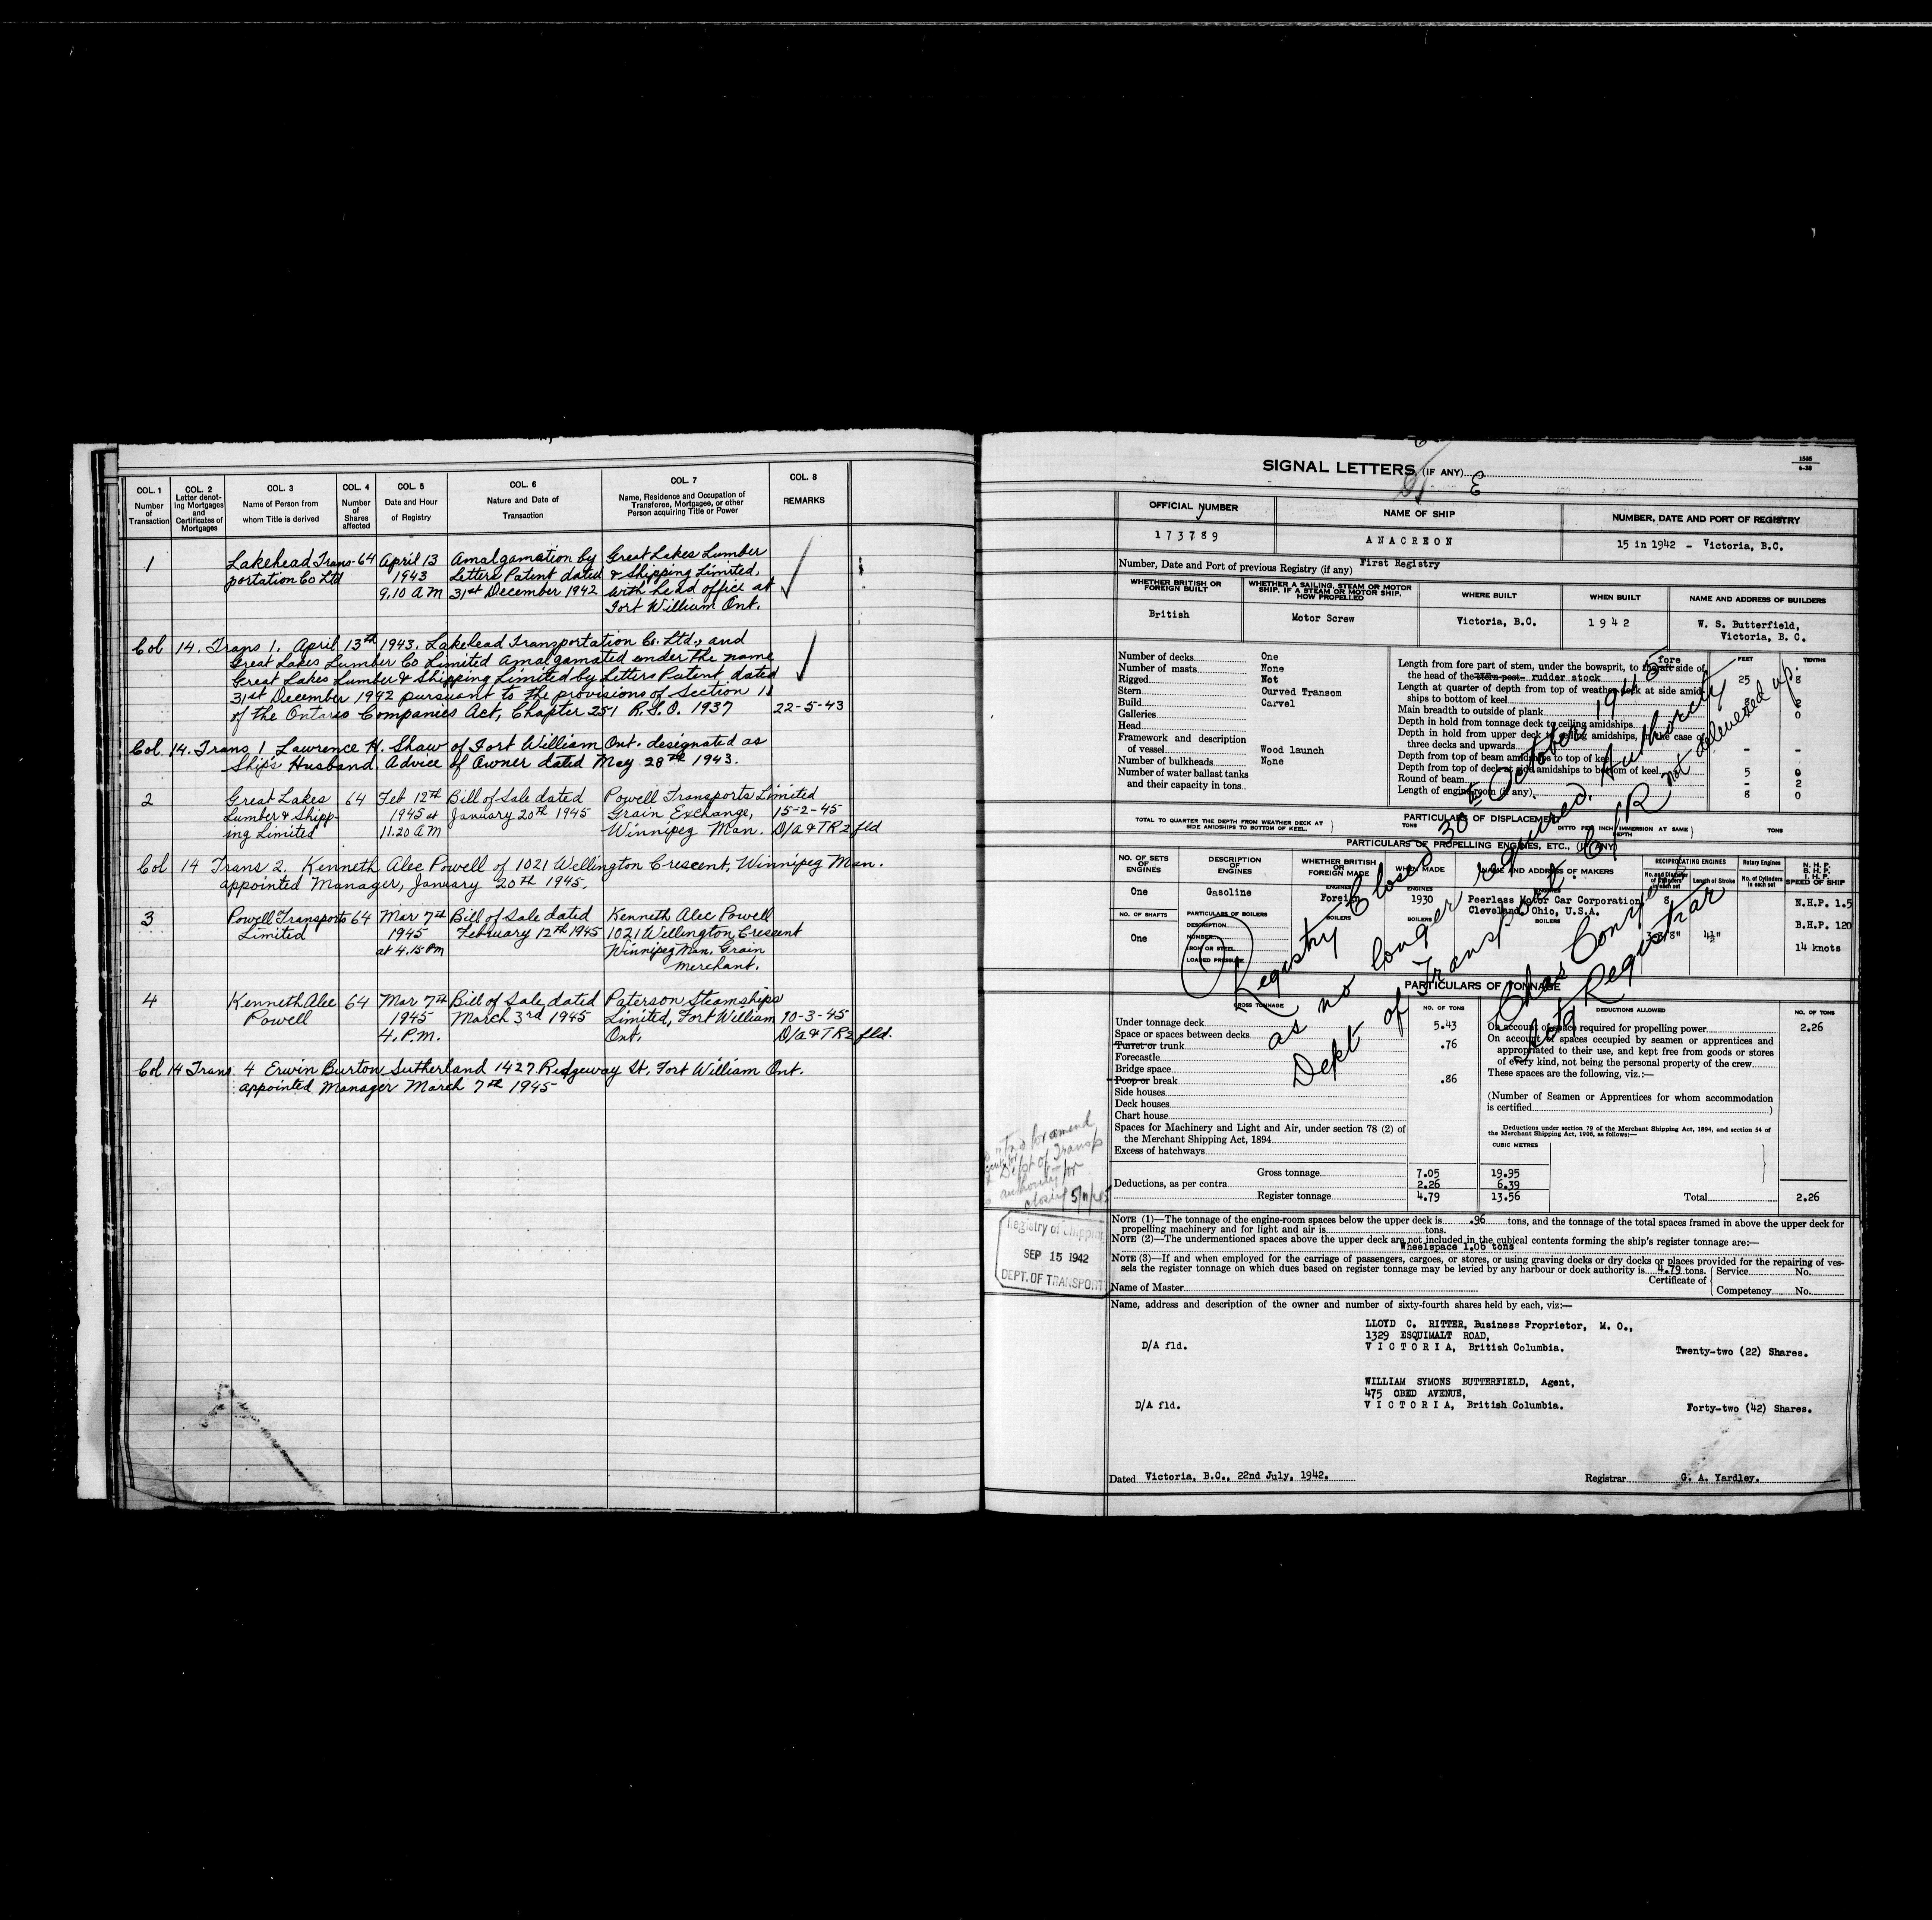 COL. 1 Number of Transaction
COL. 2 Letter denoting Mortgages and Certificates of Mortgages
COL. 3 Name of Person from whom Title is derived
COL. 4 Number of Shares affected
COL. 5 Date and Hour of Registry
COL. 6 Nature and Date of Transaction
COL. 7 Name, Residence and Occupation of Transferee, Mortgagee, or other Person acquiring Title or Power
COL. 8 REMARKS
1 Lakehead Trans- 64 April 13 Amalgamation by Great Lakes Lumber
portation Co Ltd 1943 Letters Patent dated & Shipping Limited,
9.10 A M 31st December 1942 with head office at
Fort William Ont.
Col 14. Trans 1. April 13th 1943. Lakehead Transportation Co. Ltd., and
Great Lakes Lumber Co Limited amalgamated under the name
Great Lakes Lumber & Shipping Limited by Letters Patent dated
31st December 1942 pursuant to the provisions of Section 11
of the Ontario Companies Act, Chapter 251 R.S.O. 1937 22-5-43
Col. 14. Trans 1 Lawrence H. Shaw of Fort William Ont. designated as
Ship's Husband. Advice of Owner dated May 28th 1943.
2 Great Lakes 64 Feb 12th Bill of Sale dated Powell Transports Limited
Lumber & Shipp- 1945 at January 20th 1945 Grain Exchange, 15-2-45
ing Limited 11.20 A M Winnipeg Man. D/a & TR2 fld
Col 14 Trans 2. Kenneth Alec Powell of 1021 Wellington Crescent, Winnipeg Man.
appointed Manager, January 20th 1945.
3 Powell Transports 64 Mar 7th Bill of Sale dated Kenneth Alec Powell
Limited 1945 February 12th 1945 1021 Wellington Crescent
at 4.15 PM Winnipeg Man. Grain
Merchant.
4 Kenneth Alec 64 Mar 7th Bill of Sale dated Paterson Steamships
Powell 1945 March 3rd 1945 Limited, Fort William 10-3-45
4. P.M. Ont. D/a & TR2 fld.
Col 14 Trans. 4 Erwin Burton Sutherland 1427 Ridgeway St. Fort William Ont.
appointed Manager March 7th 1945
1535
6-38
SIGNAL LETTERS (IF ANY)
OFFICIAL NUMBER NAME OF SHIP NUMBER, DATE AND PORT OF REGISTRY
173789 ANACREON 15 in 1942 - Victoria, B.C.
Number, Date and Port of previous Registry (if any) First Registry
WHETHER BRITISH OR FOREIGN BUILT
WHETHER A SAILING, STEAM OR MOTOR SHIP, IF A STEAM OR MOTOR SHIP, HOW PROPELLED
WHERE BUILT
WHEN BUILT
NAME AND ADDRESS OF BUILDERS
British Motor Screw Victoria, B.C. 1942 W. S. Butterfield,
Victoria, B. C.
Number of decks One
Number of masts None
Rigged Not
Stern Curved Transom
Build Carvel
Galleries
Head
Framework and description
of vessel Wood launch
Number of bulkheads None
Number of water ballast tanks
and their capacity in tons
FEET TENTHS
Length from fore part of stem, under the bowsprit, to the aft fore side of
the head of the stern post rudder stock 25 8
Length at quarter of depth from top of weather deck at side amid-
ships to bottom of keel 2
Main breadth to outside of plank 0
Depth in hold from tonnage deck to ceiling amidships
Depth in hold from upper deck to ceiling amidships, in the case of
three decks and upwards - -
Depth from top of beam amidships to top of keel
Depth from top of deck at side amidships to bottom of keel 5 0
Round of beam - 2
Length of engine-room (if any) 8 0
PARTICULARS OF DISPLACEMENT
TOTAL TO QUARTER THE DEPTH FROM WEATHER DECK AT SIDE AMIDSHIPS TO BOTTOM OF KEEL TONS
DITTO PER INCH IMMERSION AT SAME DEPTH TONS
PARTICULARS OF PROPELLING ENGINES, ETC., (IF ANY)
NO. OF SETS OF ENGINES
DESCRIPTION OF ENGINES
WHETHER BRITISH OR FOREIGN MADE
WHEN MADE
NAME AND ADDRESS OF MAKERS
RECIPROCATING ENGINES
No. and Diameter of Cylinders in each set
Length of Stroke
Rotary Engines
No. of Cylinders in each set
N.H.P. B.H.P. I.H.P. SPEED OF SHIP
One Gasoline ENGINES Foreign ENGINES 1930 Peerless Motor Car Corporation 8 N.H.P. 1.5
Cleveland, Ohio, U.S.A.
NO. OF SHAFTS PARTICULARS OF BOILERS BOILERS BOILERS BOILERS
DESCRIPTION B.H.P. 120
One NUMBER 4½"
IRON OR STEEL
LOADED PRESSURE 14 knots
Registry Closed 30th October 1945
as no longer required. Authority
Dept of Transport. C/R not delivered up.
Chas Conyer
Registrar
PARTICULARS OF TONNAGE
GROSS TONNAGE NO. OF TONS
Under tonnage deck 5.43
Space or spaces between decks
Turret or trunk .76
Forecastle
Bridge space
Poop or break .86
Side houses
Deck houses
Chart house
Spaces for Machinery and Light and Air, under section 78 (2) of
the Merchant Shipping Act, 1894
Excess of hatchways
Gross tonnage 7.05 19.95
Deductions, as per contra 2.26 6.39
Register tonnage 4.79 13.56
CUBIC METRES
DEDUCTIONS ALLOWED NO. OF TONS
On account of space required for propelling power 2.26
On account of spaces occupied by seamen or apprentices and
appropriated to their use, and kept free from goods or stores
of every kind, not being the personal property of the crew
These spaces are the following, viz.:—
(Number of Seamen or Apprentices for whom accommodation
is certified )
Deductions under section 79 of the Merchant Shipping Act, 1894, and section 54 of
the Merchant Shipping Act, 1906, as follows:—
Total 2.26
for amend
Dept of Transp
authority for
closing 5/11/45
Registry of Shipping
SEP 15 1942
DEPT. OF TRANSPORT
NOTE (1)—The tonnage of the engine-room spaces below the upper deck is .96 tons, and the tonnage of the total spaces framed in above the upper deck for
propelling machinery and for light and air is tons.
NOTE (2)—The undermentioned spaces above the upper deck are not included in the cubical contents forming the ship's register tonnage are:—
Wheelspace 1.06 tons
NOTE (3)—If and when employed for the carriage of passengers, cargoes, or stores, or using graving docks or dry docks or places provided for the repairing of ves-
sels the register tonnage on which dues based on register tonnage may be levied by any harbour or dock authority is 4.79 tons.
Name of Master Certificate of Service No.
Competency No.
Name, address and description of the owner and number of sixty-fourth shares held by each, viz:—
LLOYD C. RITTER, Business Proprietor, M. O.,
1329 ESQUIMALT ROAD,
D/A fld. VICTORIA, British Columbia. Twenty-two (22) Shares.
WILLIAM SYMONS BUTTERFIELD, Agent,
475 OBED AVENUE,
D/A fld. VICTORIA, British Columbia. Forty-two (42) Shares.
Dated Victoria, B.C., 22nd July, 1942. Registrar G. A. Yardley.